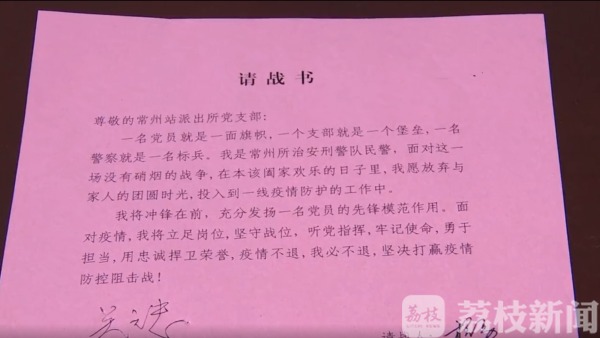 请战书
尊敬的常州站派出所党支部：
一名党员就是一面旗帜，一个支部就是一个堡垒，一名
警察就是一名标兵。我是常州所治安刑警队民警，面对这一
场没有硝烟的战争，在本该阖家欢乐的日子里，我愿放弃与
家人的团圆时光，投入到一线疫情防护的工作中。
我将冲锋在前，充分发扬一名党员的先锋模范作用。面
对疫情，我将立足岗位，坚守战位，听党指挥，牢记使命，勇于
担当，用忠诚捍卫荣誉，疫情不退，我必不退，坚决打赢疫情
防控阻击战！
荔枝
荔枝新闻